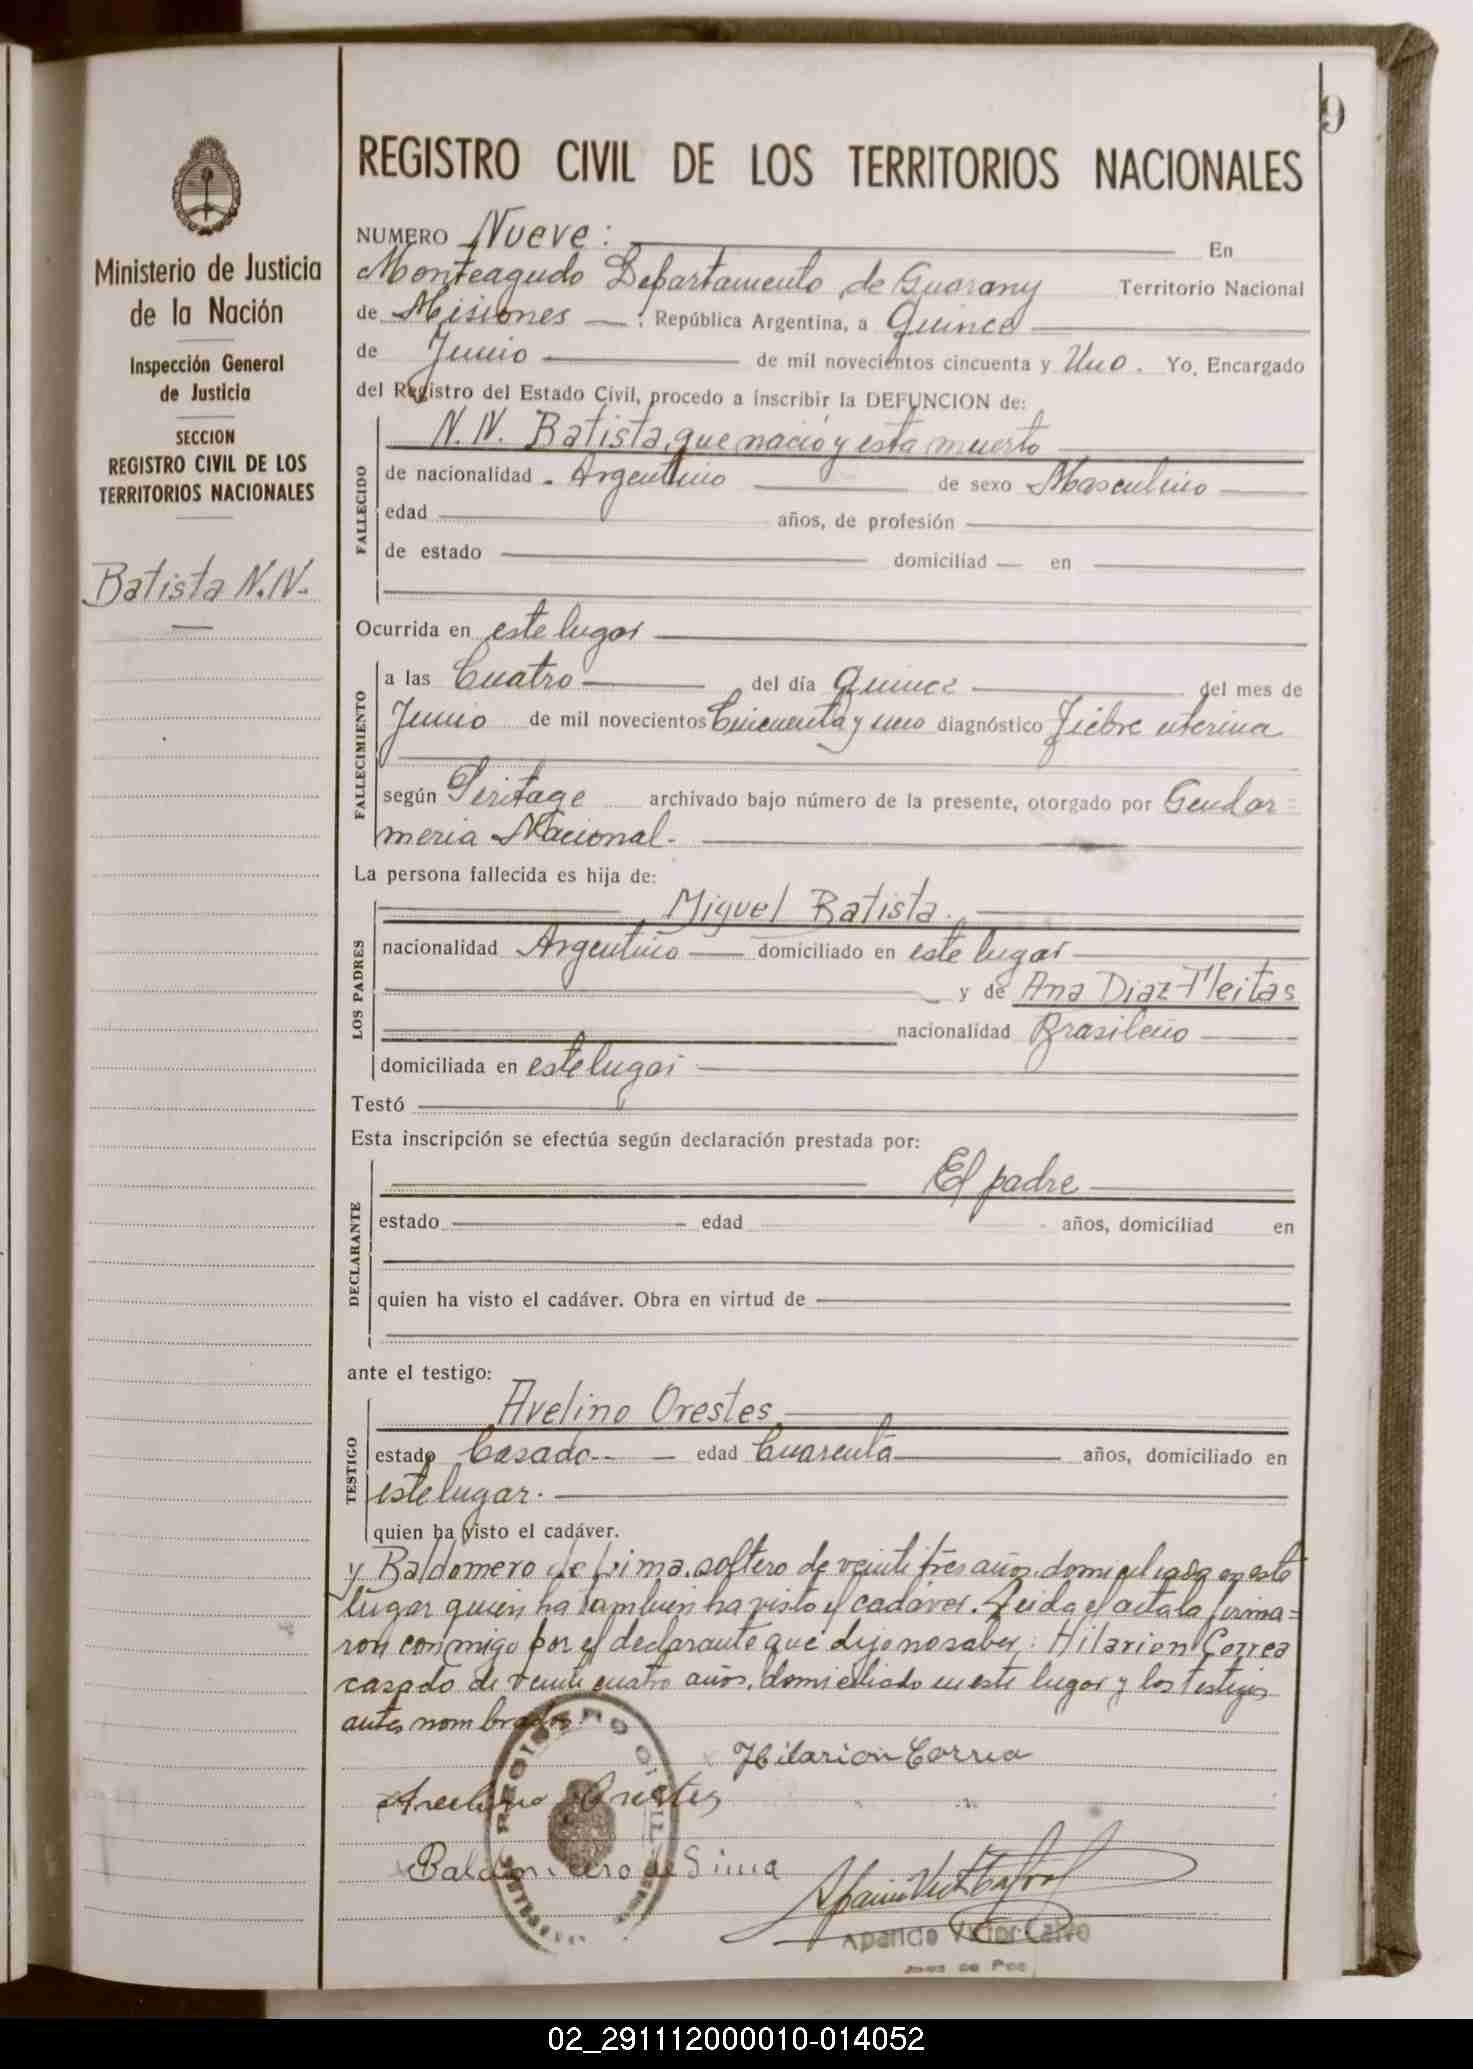 9
REGISTRO CIVIL DE LOS TERRITORIOS NACIONALES
Ministerio de Justicia
de la Nación
Inspección General
de Justicia
SECCION
REGISTRO CIVIL DE LOS
TERRITORIOS NACIONALES
Batista N.N.
NUMERO Nueve: En
Monteagudo Departamento de Guarany Territorio Nacional
de Misiones : República Argentina, a Quince
de Junio de mil novecientos cincuenta y Uno. Yo, Encargado
del Registro del Estado Civil, procedo a inscribir la DEFUNCION de:
FALLECIDO
N.N. Batista, que nació y esta muerto
de nacionalidad - Argentino de sexo Masculino
edad años, de profesión
de estado domiciliad en
Ocurrida en este lugar
FALLECIMIENTO
a las Cuatro del día Quince del mes de
Junio de mil novecientos Cincuenta y uno diagnóstico Fiebre uterina
según Peritage archivado bajo número de la presente, otorgado por Gendar=
meria Nacional.-
La persona fallecida es hija de:
LOS PADRES
Miguel Batista.
nacionalidad Argentino domiciliado en este lugar
y de Ana Diaz Fleitas
nacionalidad Brasileño
domiciliada en este lugar
Testó
Esta inscripción se efectúa según declaración prestada por:
DECLARANTE
El padre
estado edad años, domiciliad en
quien ha visto el cadáver. Obra en virtud de
ante el testigo:
TESTIGO
Avelino Orestes,
estado Casado-- edad Cuarenta años, domiciliado en
este lugar.
quien ha visto el cadáver.
y Baldomero de Lima, soltero de veinti tres años, domiciliado en este
lugar quien ha tambien ha visto el cadáver. Leida el acta la firma=
ron conmigo por el declarante que dijo no saber, : Hilarion Correa
casado de veinte cuatro años, domiciliado en este lugar y los testigos
antes nombrados.
Hilarion Correa
Avelino Orestes
REGISTRO CIVIL
Baldomero de Lima
Aparicio Victor Calvo
Juez de Paz
02_291112000010-014052